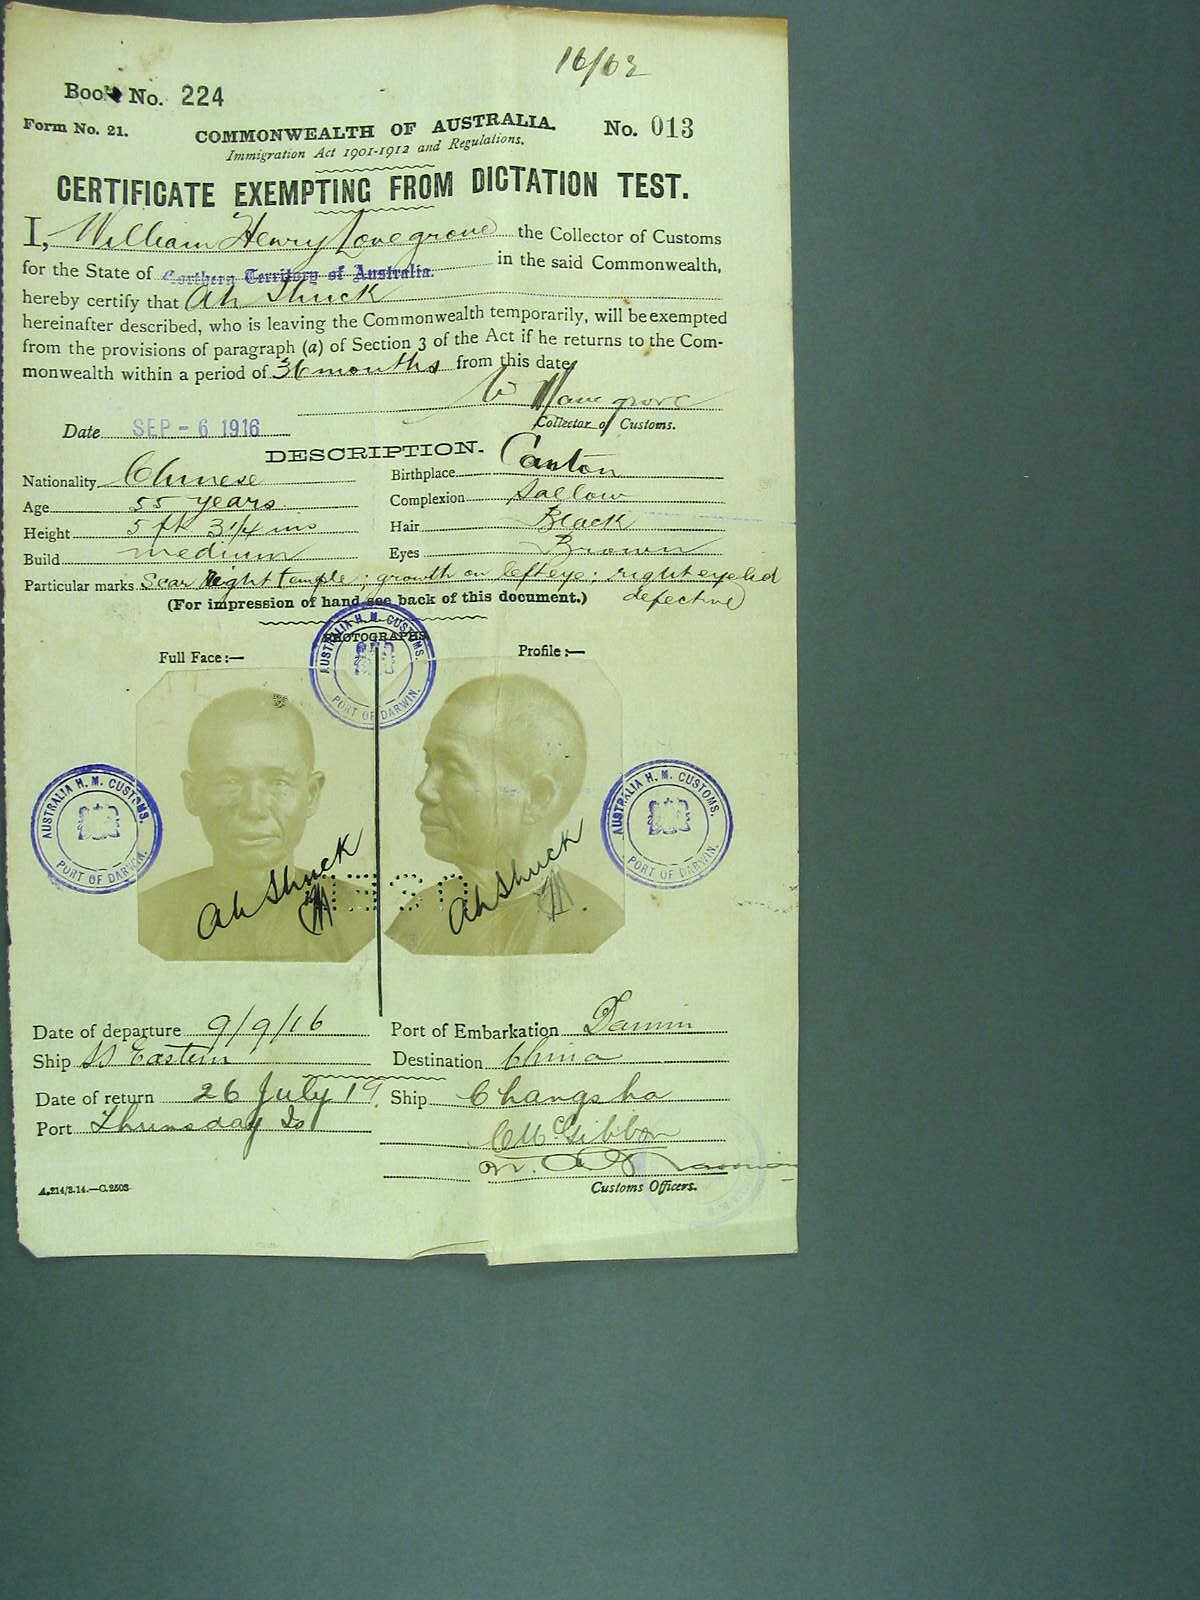 16/63
Book No. 224
Form No. 21.
COMMONWEALTH OF AUSTRALIA.
No. 013
Immigration Act 1901-1912 and Regulations.
CERTIFICATE EXEMPTING FROM DICTATION TEST.
I, William Henry Lovegrove the Collector of Customs
for the State of Northern Territory of Australia. in the said Commonwealth,
hereby certify that Ah Shuck
hereinafter described, who is leaving the Commonwealth temporarily, will be exempted
from the provisions of paragraph (a) of Section 3 of the Act if he returns to the Com-
monwealth within a period of 36 months from this date
W H Lovegrove
Collector of Customs.
Date SEP - 6 1916
DESCRIPTION.
Nationality Chinese Birthplace Canton
Age 55 years Complexion Sallow
Height 5 ft 3 1/4 ins Hair Black
Build medium Eyes Brown
Particular marks Scar Right temple; growth on left eye; right eyelid
defective
(For impression of hand see back of this document.)
PHOTOGRAPHS
Full Face:— Profile:—
AUSTRALIA H. M. CUSTOMS.
PORT OF DARWIN.
AUSTRALIA H. M. CUSTOMS.
PORT OF DARWIN.
AUSTRALIA H. M. CUSTOMS.
PORT OF DARWIN.
Ah Shuck
Ah Shuck
Date of departure 9/9/16 Port of Embarkation Darwin
Ship SS Eastern Destination China
Date of return 26 July 19. Ship Changsha
Port Thursday Is
C McGibbon
Customs Officers.
A.214/3.14.—C.2503